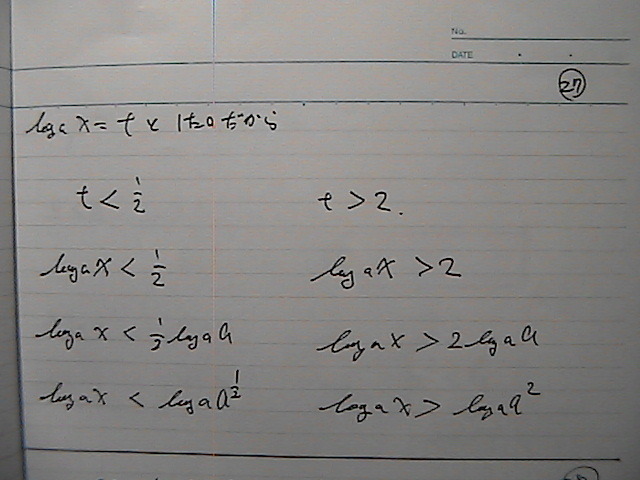 No.
DATE
27
log_a X = t と したのだから
t < 1/2    t > 2.
log_a X < 1/2    log_a X > 2
log_a X < 1/2 log_a a    log_a X > 2 log_a a
log_a X < log_a a^(1/2)    log_a X > log_a a^2